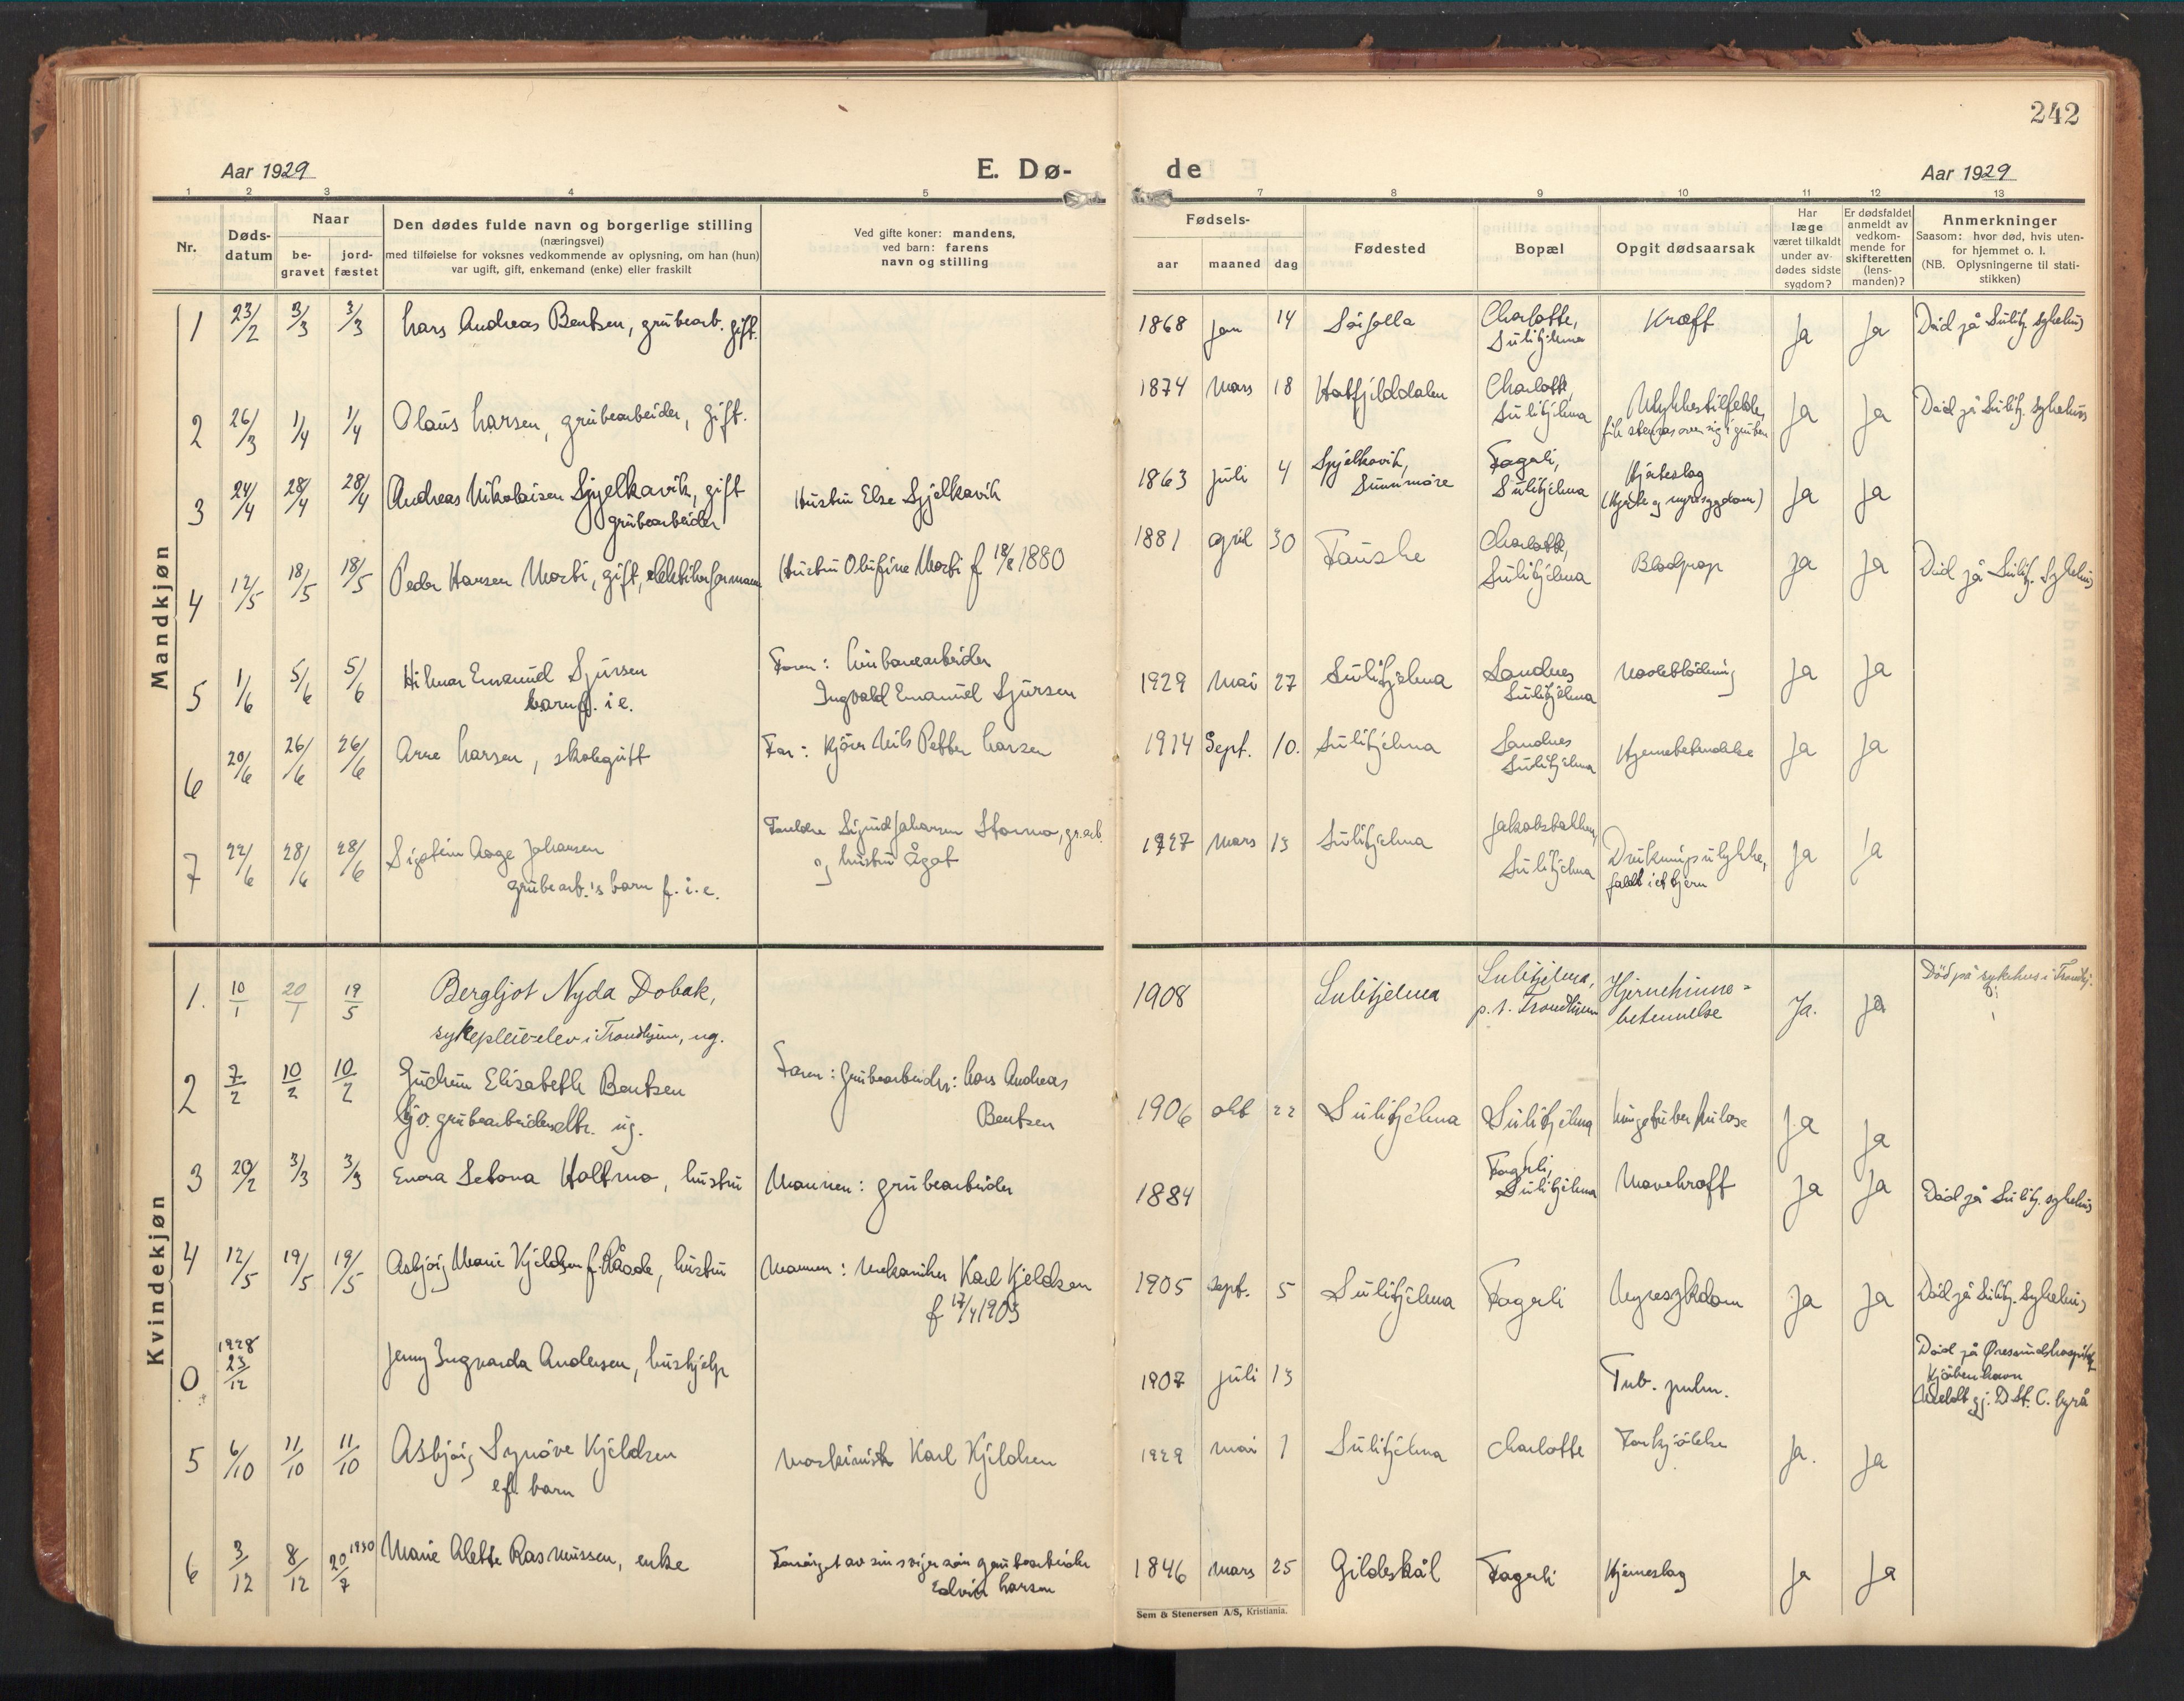 242
Aar 1929
E. Dø-
de
Aar 1929
1 2 3 4 5 6 7 8 9 10 11 12 13
Nr.
Døds-
datum
Naar
be-
gravet
jord-
fæstet
Den dødes fulde navn og borgerlige stilling
(næringsvei)
med tilføielse for voksnes vedkommende av oplysning, om han (hun)
var ugift, gift, enkemand (enke) eller fraskilt
Ved gifte koner: mandens,
ved barn: farens
navn og stilling
Fødsels-
aar maaned dag
Fødested
Bopæl
Opgit dødsaarsak
Har
læge
været tilkaldt
under av-
dødes sidste
sygdom?
Er dødsfaldet
anmeldt av
vedkom-
mende for
skifteretten
(lens-
manden)?
Anmerkninger
Saasom: hvor død, hvis uten-
for hjemmet o. l.
(NB. Oplysningerne til stati-
stikken)
Mandkjøn
1 23/2 3/3 3/3 Lars Andreas Bentsen, grubearb. gift. 1868 jan 14 Charlotte, Kræft Ja Ja Død på Sulitj. sykehus
Sulitjelma
2 26/3 1/4 1/4 Olaus Larsen, grubearbeider, gift. 1874 Mars 18 Hatfjelddalen Charlotte, Ulykkestilfelde, Ja Ja Død på Sulitj. sykehus
Sulitjelma fik stenras over sig i gruben
3 24/4 28/4 28/4 Andreas Nikolaisen Spjelkavik, gift Hustru Else Spjelkavik 1863 juli 4 Spjelkavik, Fagerli, Hjerteslag Ja Ja
grubearbeider Sunnmøre Sulitjelma (Hjerte og nyresygdom)
4 12/5 18/5 18/5 Peder Hansen, gift, Hustru f 18/8 1880 1881 april 30 Fauske Charlotte, Blodprop Ja Ja Død på Sulitj. Sykehus
Sulitjelma
5 1/6 5/6 5/6 Hilmar Emanuel Sjursen Faren: Linbanearbeider 1929 Mai 27 Sulitjelma Sandnes Navleblødning Ja Ja
barn f. i e. Ingvald Emanuel Sjursen Sulitjelma
6 20/6 26/6 26/6 Arne Larsen, skolegutt Far: Kjører Nils Petter Larsen 1914 Sept. 10. Sulitjelma Sandnes Hjernebetendelse Ja Ja
Sulitjelma
7 22/6 28/6 28/6 Sigstein Aage Johansen Foreldre Sigurd Johansen Stormo, gr.arb. 1927 Mars 13 Sulitjelma Jakobsbakken, Drukningsulykke, Ja Ja
grubearb.'s barn f. i. e. og hustru Ågot Sulitjelma faldt i et tjern
Kvindekjøn
1. 10/1 20/1 19/5 Bergljot Nyda Dobak, 1908 Sulitjelma Sulitjelma, Hjernehinne- Ja. Ja Död på sykehus i Trondhj.
sykepleie-elev i Trondhjem, ug. p. t. Trondhjem betennelse
2 7/2 10/2 10/2 Gudrun Elisabeth Bentsen Faren: Grubearbeider: Lars Andreas 1906 okt 22 Sulitjelma Sulitjelma Lungetuberkulose Ja Ja
grubearbeiderdtr. ug. Bentsen
3 20/2 3/3 3/3 Enora Setona Holtmo, hustru Mannen: grubearbeider 1884 Fagerli, Mavekræft Ja Ja Død på Sulitj. sykehus
Sulitjelma
4 12/5 19/5 19/5 Asbjørg Marie Kjeldsen f. Råade, hustru Mannen: Mekaniker Karl Kjeldsen 1905 sept. 5 Sulitjelma Fagerli Nyresykdom Ja Ja Død på Sulitj. Sykehus
f 17/4 1903
0 1928 23/12 Jenny Ingvarda Andersen, hushjelp 1907 juli 13 Tub. pulm. Død på Øresundshospital
Kjøbenhavn
Meldt gj. D St. C. byrå
5 6/10 11/10 11/10 Asbjørg Synøve Kjeldsen Maskinist Karl Kjeldsen 1929 mai 1 Sulitjelma Charlotte Forkjølelse Ja. Ja
ef. barn
6 3/12 8/12 20/7 1930 Marie Alette Rasmussen, enke Forsørget av sin svigersøn grubearbeider 1846 Mars 25 Gildeskål Fagerli Hjerneslag Ja Ja
Edvin Larsen
Sem & Stenersen A/S, Kristiania.